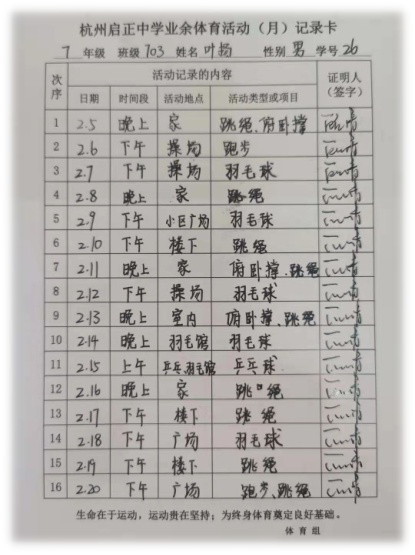 杭州启正中学业余体育活动（月）记录卡
7 年级 班级 703 姓名 叶扬 性别 男 学号 26
次序 活动记录的内容 证明人（签字）
日期 时间段 活动地点 活动类型或项目
1 2.5 晚上 家 跳绳、俯卧撑
2 2.6 下午 操场 跑步
3 2.7 下午 操场 羽毛球
4 2.8 晚上 家 跳绳
5 2.9 下午 小区广场 羽毛球
6 2.10 下午 楼下 跳绳
7 2.11 晚上 家 俯卧撑、跳绳
8 2.12 下午 操场 羽毛球
9 2.13 晚上 室内 俯卧撑、跳绳
10 2.14 晚上 羽毛馆 羽毛球
11 2.15 上午 乒乓、羽毛馆 乒乓球
12 2.16 晚上 家 跳绳
13 2.17 下午 楼下 跳绳
14 2.18 下午 广场 羽毛球
15 2.19 下午 楼下 跳绳
16 2.20 下午 广场 跑步、跳绳
生命在于运动，运动贵在坚持；为终身体育奠定良好基础。
体育组